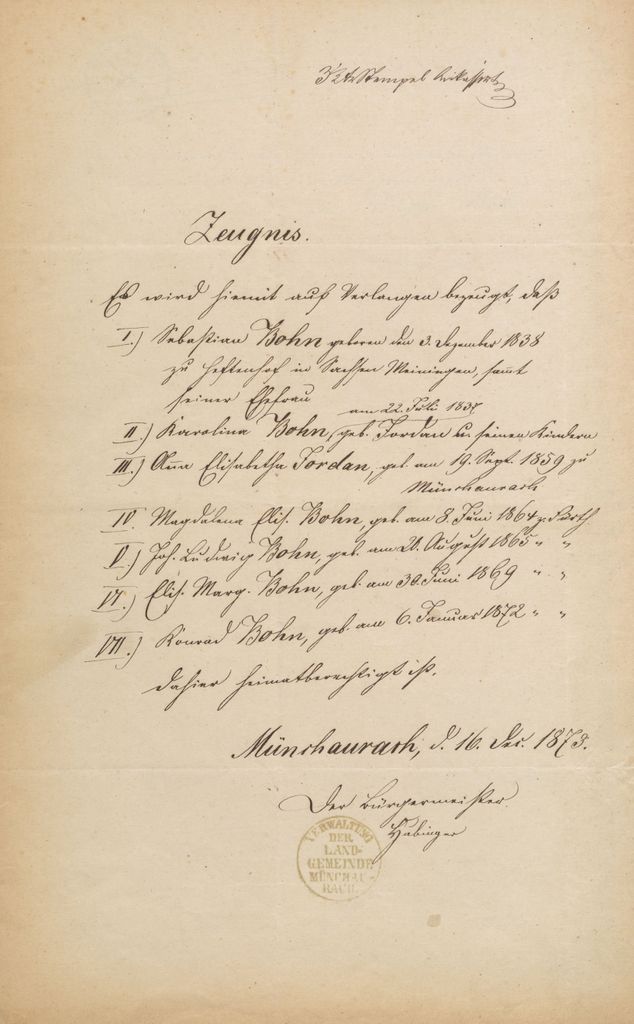 3 Kr Stempel
Zeugnis.
Es wird hiemit auf Verlangen bezeugt, daß
I.) Sebastian Bohn geboren den 3. Dezember 1838
zu Heftenhof in Sachsen Meiningen, sammt
seiner Ehefrau
am 22. Juli 1837
II.) Karolina Bohn, geb. Jordan u. seinen Kindern
III.) Anna Elisabetha Jordan, geb. am 19. Sept. 1859 zu
Münchaurach
IV. Magdalena Elis. Bohn, geb. am 8. Juni 1864 z. Fürth
V.) Joh. Ludwig Bohn, geb. am 28. August 1865 " "
VI.) Elis. Marg. Bohn, geb. am 30. Juni 1869 " "
VII.) Konrad Bohn, geb. am 6. Januar 1872 " "
dahier heimatberechtigt ist.
Münchaurach, d. 16. Dec. 1873.
Der Bürgermeister.
Hübinger
VERWALTUNG
DER
LAND-
GEMEINDE
MÜNCHAU-
RACH.